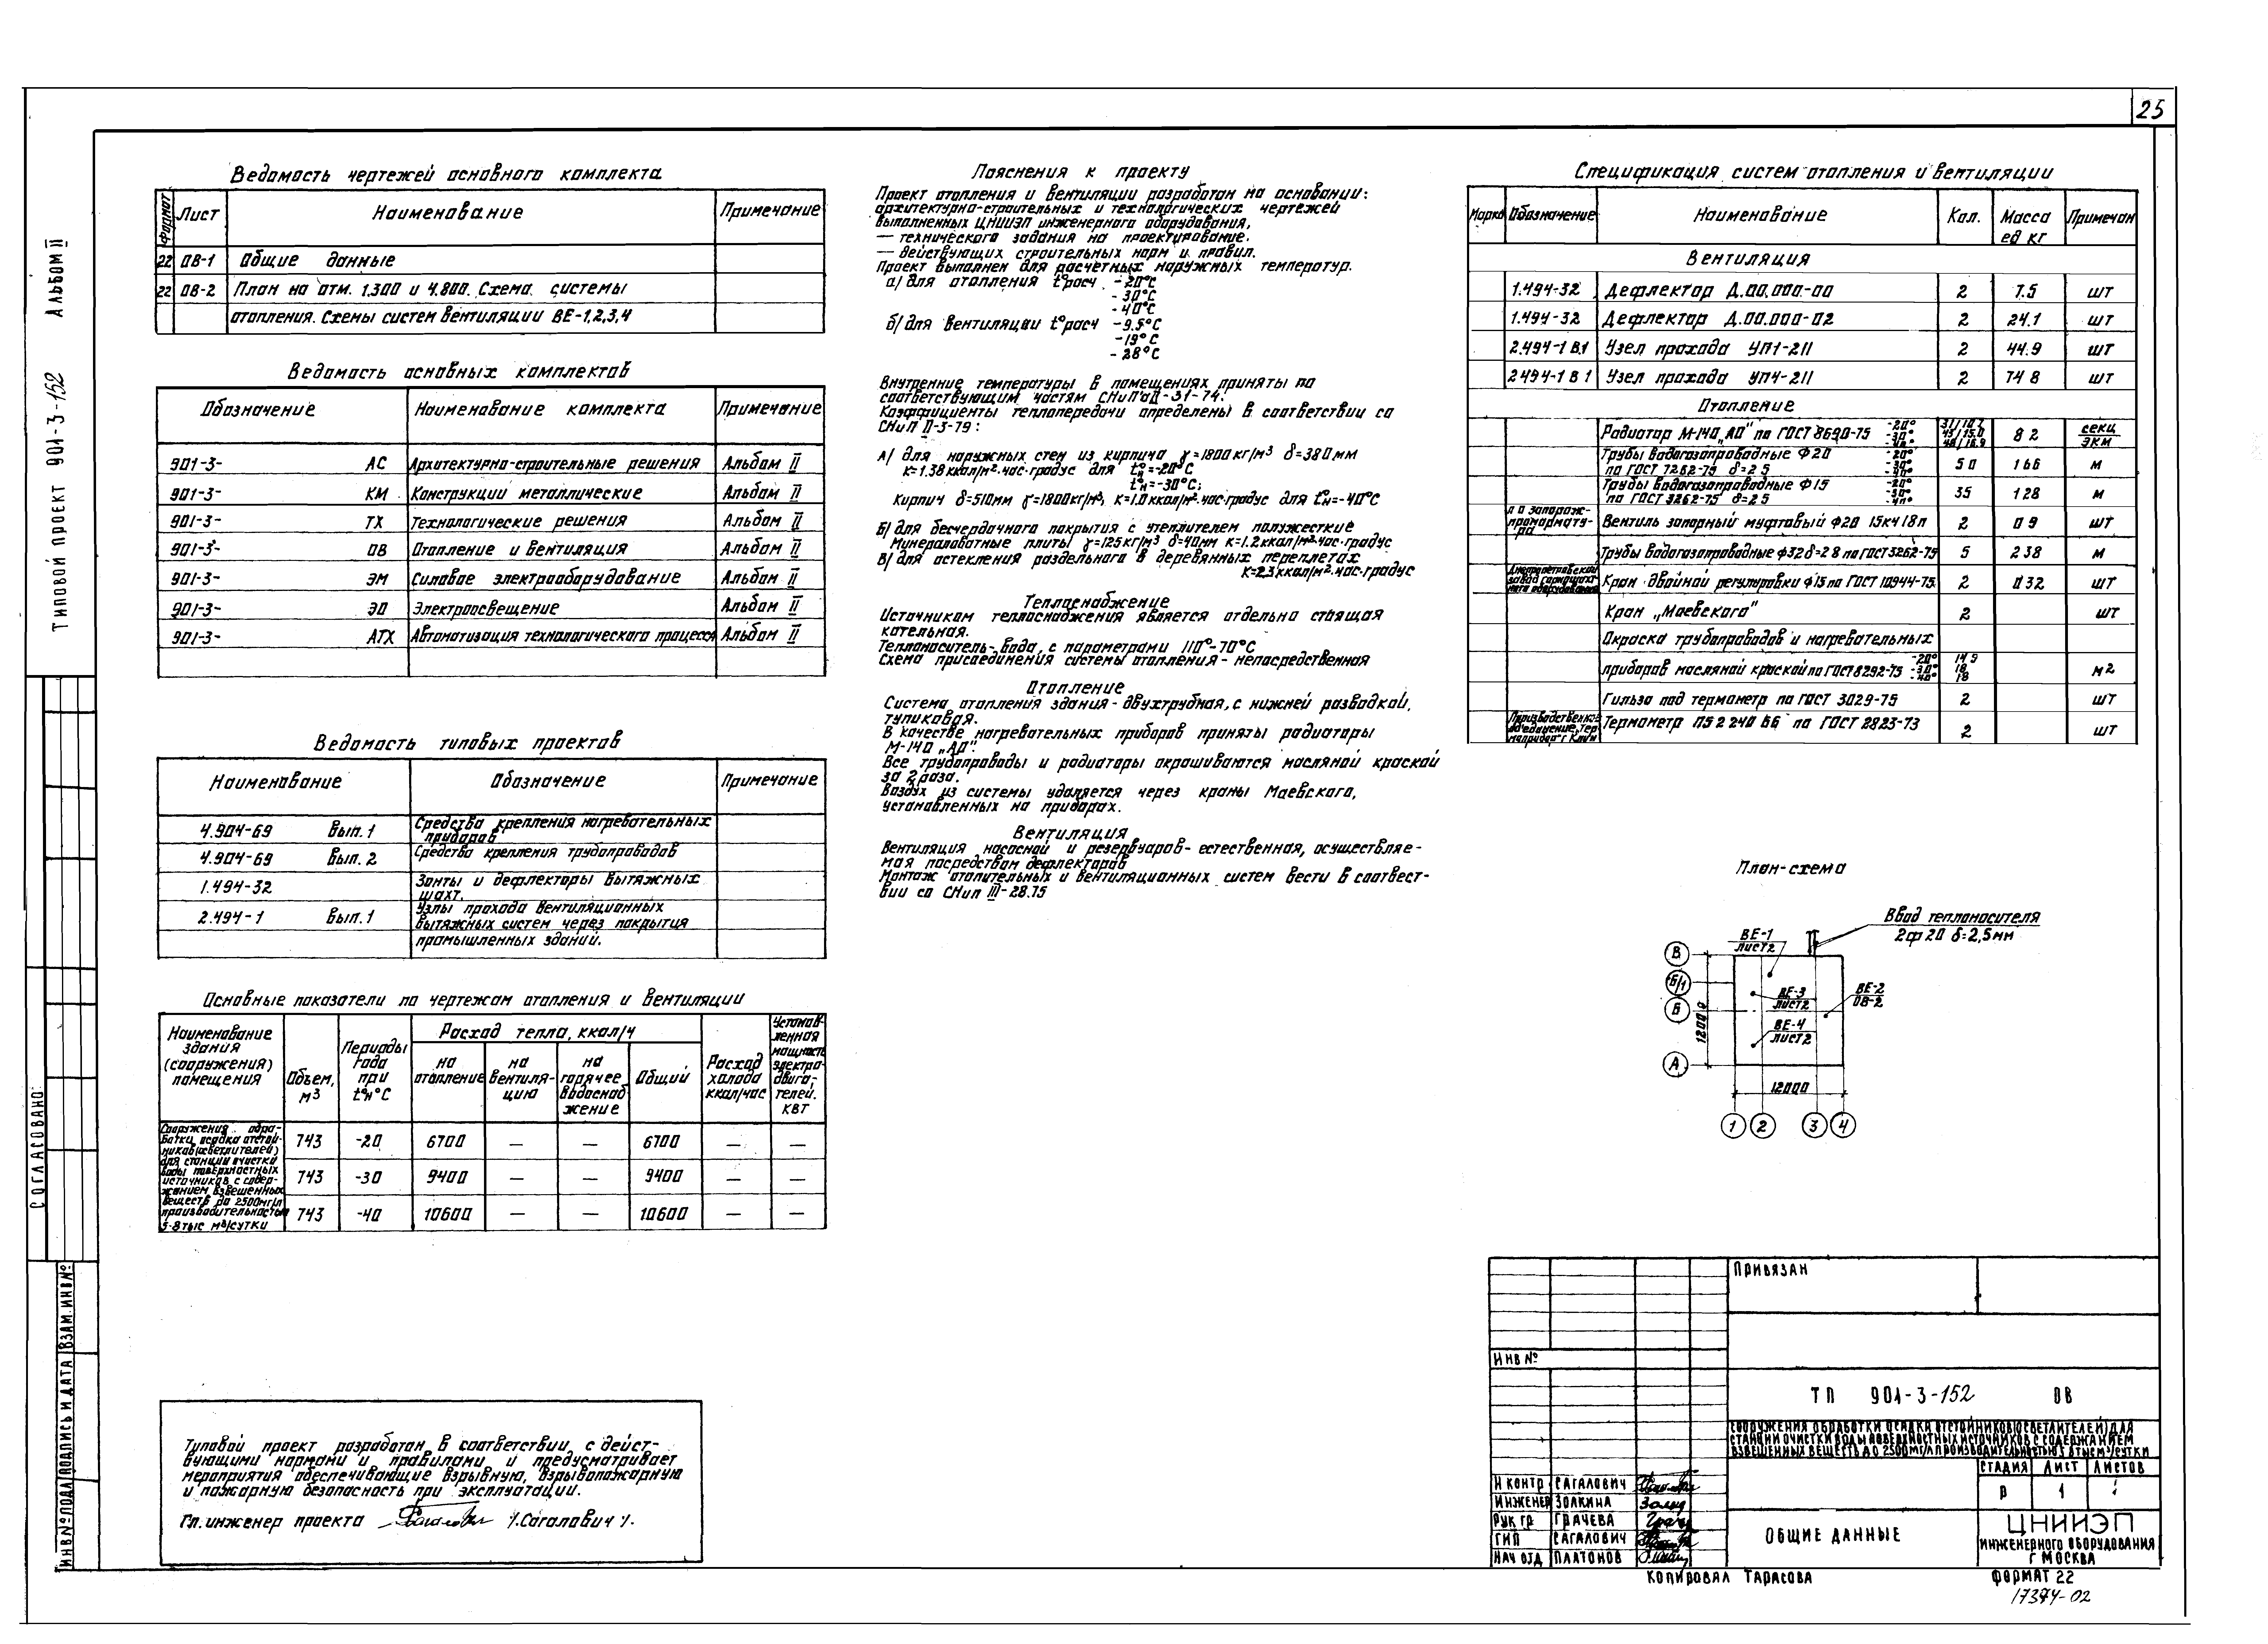 25
ТИПОВОЙ ПРОЕКТ 901-3-152 АЛЬБОМ II
СОГЛАСОВАНО:
ИНВ№ПОДЛ ПОДПИСЬ И ДАТА ВЗАМ.ИНВ№
Ведомость чертежей основного комплекта
Формат Лист Наименование Примечание
22 ОВ-1 Общие данные
22 ОВ-2 План на отм. 1.300 и 4.800. Схема системы
отопления. Схемы систем вентиляции ВЕ-1,2,3,4
Ведомость основных комплектов
Обозначение Наименование комплекта Примечание
901-3- АС Архитектурно-строительные решения Альбом II
901-3- КМ Конструкции металлические Альбом II
901-3- ТХ Технологические решения Альбом II
901-3- ОВ Отопление и вентиляция Альбом II
901-3- ЭМ Силовое электрооборудование Альбом II
901-3- ЭО Электроосвещение Альбом II
901-3- АТХ Автоматизация технологического процесса Альбом II
Ведомость типовых проектов
Наименование Обозначение Примечание
4.904-69 Вып.1 Средства крепления нагревательных
приборов
4.904-69 Вып.2 Средства крепления трубопроводов
1.494-32 Зонты и дефлекторы вытяжных
шахт.
2.494-1 Вып.1 Узлы прохода вентиляционных
вытяжных систем через покрытия
промышленных зданий.
Основные показатели по чертежам отопления и вентиляции
Наименование здания (сооружения) помещения
Объем, м3
Периоды года при t°н°С
Расход тепла, ккал/ч
на отопление
на вентиляцию
на горячее водоснабжение
Общий
Расход холода ккал/час
Установленная мощность электродвигателей. КВТ
Сооружения обра-
ботки осадка отстой-
ников (осветлителей)
для станции очистки
воды поверхностных
источников с содер-
жанием взвешенных
веществ до 2500мг/л
производительностью
5-8 тыс м3/сутки
743 -20 6700 — — 6700 — —
743 -30 9400 — — 9400 — —
743 -40 10600 — — 10600 — —
Типовой проект разработан в соответствии с дейст-
вующими нормами и правилами и предусматривает
мероприятия обеспечивающие взрывную, взрывопожарную
и пожарную безопасность при эксплуатации.
Гл. инженер проекта /Сагалович/.
Пояснения к проекту
Проект отопления и вентиляции разработан на основании:
архитектурно-строительных и технологических чертежей
выполненных ЦНИИЭП инженерного оборудования,
— технического задания на проектирование.
— действующих строительных норм и правил.
Проект выполнен для расчетных наружных температур.
а/ для отопления t°расч. -20°С
-30°С
-40°С
б/ для вентиляции t°расч -9.5°С
-19°С
-28°С
Внутренние температуры в помещениях приняты по
соответствующим частям СНиП'а II-31-74.
Коэффициенты теплопередачи определены в соответствии со
СНиП II-3-79:
А/ для наружных стен из кирпича γ=1800кг/м3 δ=380мм
К=1.38ккал/м2.час.градус для t°н=-20°С
t°н=-30°С;
Кирпич δ=510мм γ=1800кг/м3, К=1.0ккал/м2.час.градус для t°н=-40°С
Б/ для бесчердачного покрытия с утеплителем полужесткие
Минераловатные плиты γ=125кг/м3 δ=40мм К=1.2ккал/м2.час.градус
В/ для остекления раздельного в деревянных переплетах
К=2.3ккал/м2.час.градус
Теплоснабжение
Источником теплоснабжения является отдельно стоящая
котельная.
Теплоноситель-вода, с параметрами 110°-70°С
Схема присоединения системы отопления-непосредственная
Отопление
Система отопления здания-двухтрубная, с нижней разводкой,
тупиковая.
В качестве нагревательных приборов приняты радиаторы
М-140 „АО".
Все трубопроводы и радиаторы окрашиваются масляной краской
за 2 раза.
Воздух из системы удаляется через краны Маевского,
установленных на приборах.
Вентиляция
Вентиляция насосной и резервуаров-естественная, осуществляе-
мая посредством дефлекторов
Монтаж отопительных и вентиляционных систем вести в соотвест-
вии со СНиП III-28.75
Спецификация систем отопления и вентиляции
Марка Обозначение Наименование Кол. Масса ед кг Примечан
Вентиляция
1.494-32 Дефлектор Д.00.000-00 2 7.5 шт
1.494-32 Дефлектор Д.00.000-02 2 24.1 шт
2.494-1 В.1 Узел прохода УП1-211 2 44.9 шт
2 494-1 В 1 Узел прохода УП4-211 2 74 8 шт
Отопление
Радиатор М-140 „АО" по ГОСТ 8690-75 -20° -30° -40° 8 2 секц/экм
Трубы водогазопроводные Ф20 -20°
по ГОСТ 3262-75 δ=2 5 -30° -40° 50 1 66 м
Трубы водогазопроводные Ф15 -20°
по ГОСТ 3262-75 δ=2 5 -30° -40° 35 1 28 м
Вентиль запорный муфтовый Ф20 15кч18п 2 0 9 шт
Трубы водогазопроводные Ф32 δ=2 8 по ГОСТ 3262-75 5 2 38 м
Кран двойной регулировки Ф15 по ГОСТ 10944-75. 2 0 32 шт
Кран „Маевского" 2 шт
Окраска трубопроводов и нагревательных
приборов масляной краской по ГОСТ 8292-75 -20° -30° -40° 14 9 18 18 м2
Гильза под термометр по ГОСТ 3029-75 2 шт
Термометр П5 2 240 66 по ГОСТ 2823-73 2 шт
План-схема
Ввод теплоносителя
2ф20 δ=2,5мм
ВЕ-1
лист2
ВЕ-3
лист2
ВЕ-4
лист2
ВЕ-2
ОВ-2
В
Б/1
Б
А
12000
12000
1 2 3 4
ПРИВЯЗАН
ИНВ №
ТП 901-3-152 ОВ
СООРУЖЕНИЯ ОБРАБОТКИ ОСАДКА ОТСТОЙНИКОВ(ОСВЕТЛИТЕЛЕЙ) ДЛЯ
СТАНЦИИ ОЧИСТКИ ВОДЫ ПОВЕРХНОСТНЫХ ИСТОЧНИКОВ С СОДЕРЖАНИЕМ
ВЗВЕШЕННЫХ ВЕЩЕСТВ ДО 2500МГ/Л ПРОИЗВОДИТЕЛЬНОСТЬЮ 5 8 ТЫС М3/СУТКИ
СТАДИЯ ЛИСТ ЛИСТОВ
Р 1
Н КОНТР САГАЛОВИЧ
ИНЖЕНЕР ЗОЛКИНА
РУК ГР ГРАЧЕВА
ГИП САГАЛОВИЧ
НАЧ ОТД ПЛАТОНОВ
ОБЩИЕ ДАННЫЕ
ЦНИИЭП
ИНЖЕНЕРНОГО ОБОРУДОВАНИЯ
Г МОСКВА
КОПИРОВАЛ ТАРАСОВА
ФОРМАТ 22
17374-02